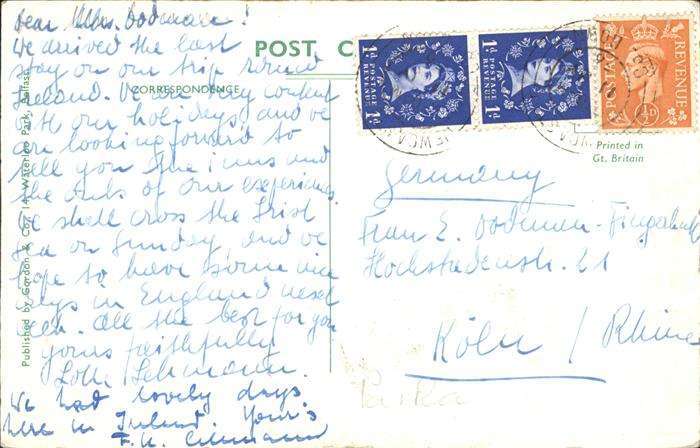 Dear Mrs. Dodman!
We arrived the last
stay on our trip round
Ireland. We are very content
with our holidays and we
are looking forward to
tell you the inns and
the outs of our experiences.
We shall cross the Irish
Sea on Sunday and we
hope to have some nice
days in England next
week. All the best for you
yours faithfully
Lotte Lehmann.
We had lovely days
here in Ireland. Yours
F. K. Lehmann
POST
CORRESPONDENCE
Published by Gordon & Co., 14 Waterloo Park, Belfast.
1d POSTAGE REVENUE 1d
1d POSTAGE REVENUE 1d
POSTAGE REVENUE
½D
NEWCA
Printed in
Gt. Britain
Germany
Frau E. Dodman-Fingerhut
Hochstadenstr. 21
Köln / Rhine